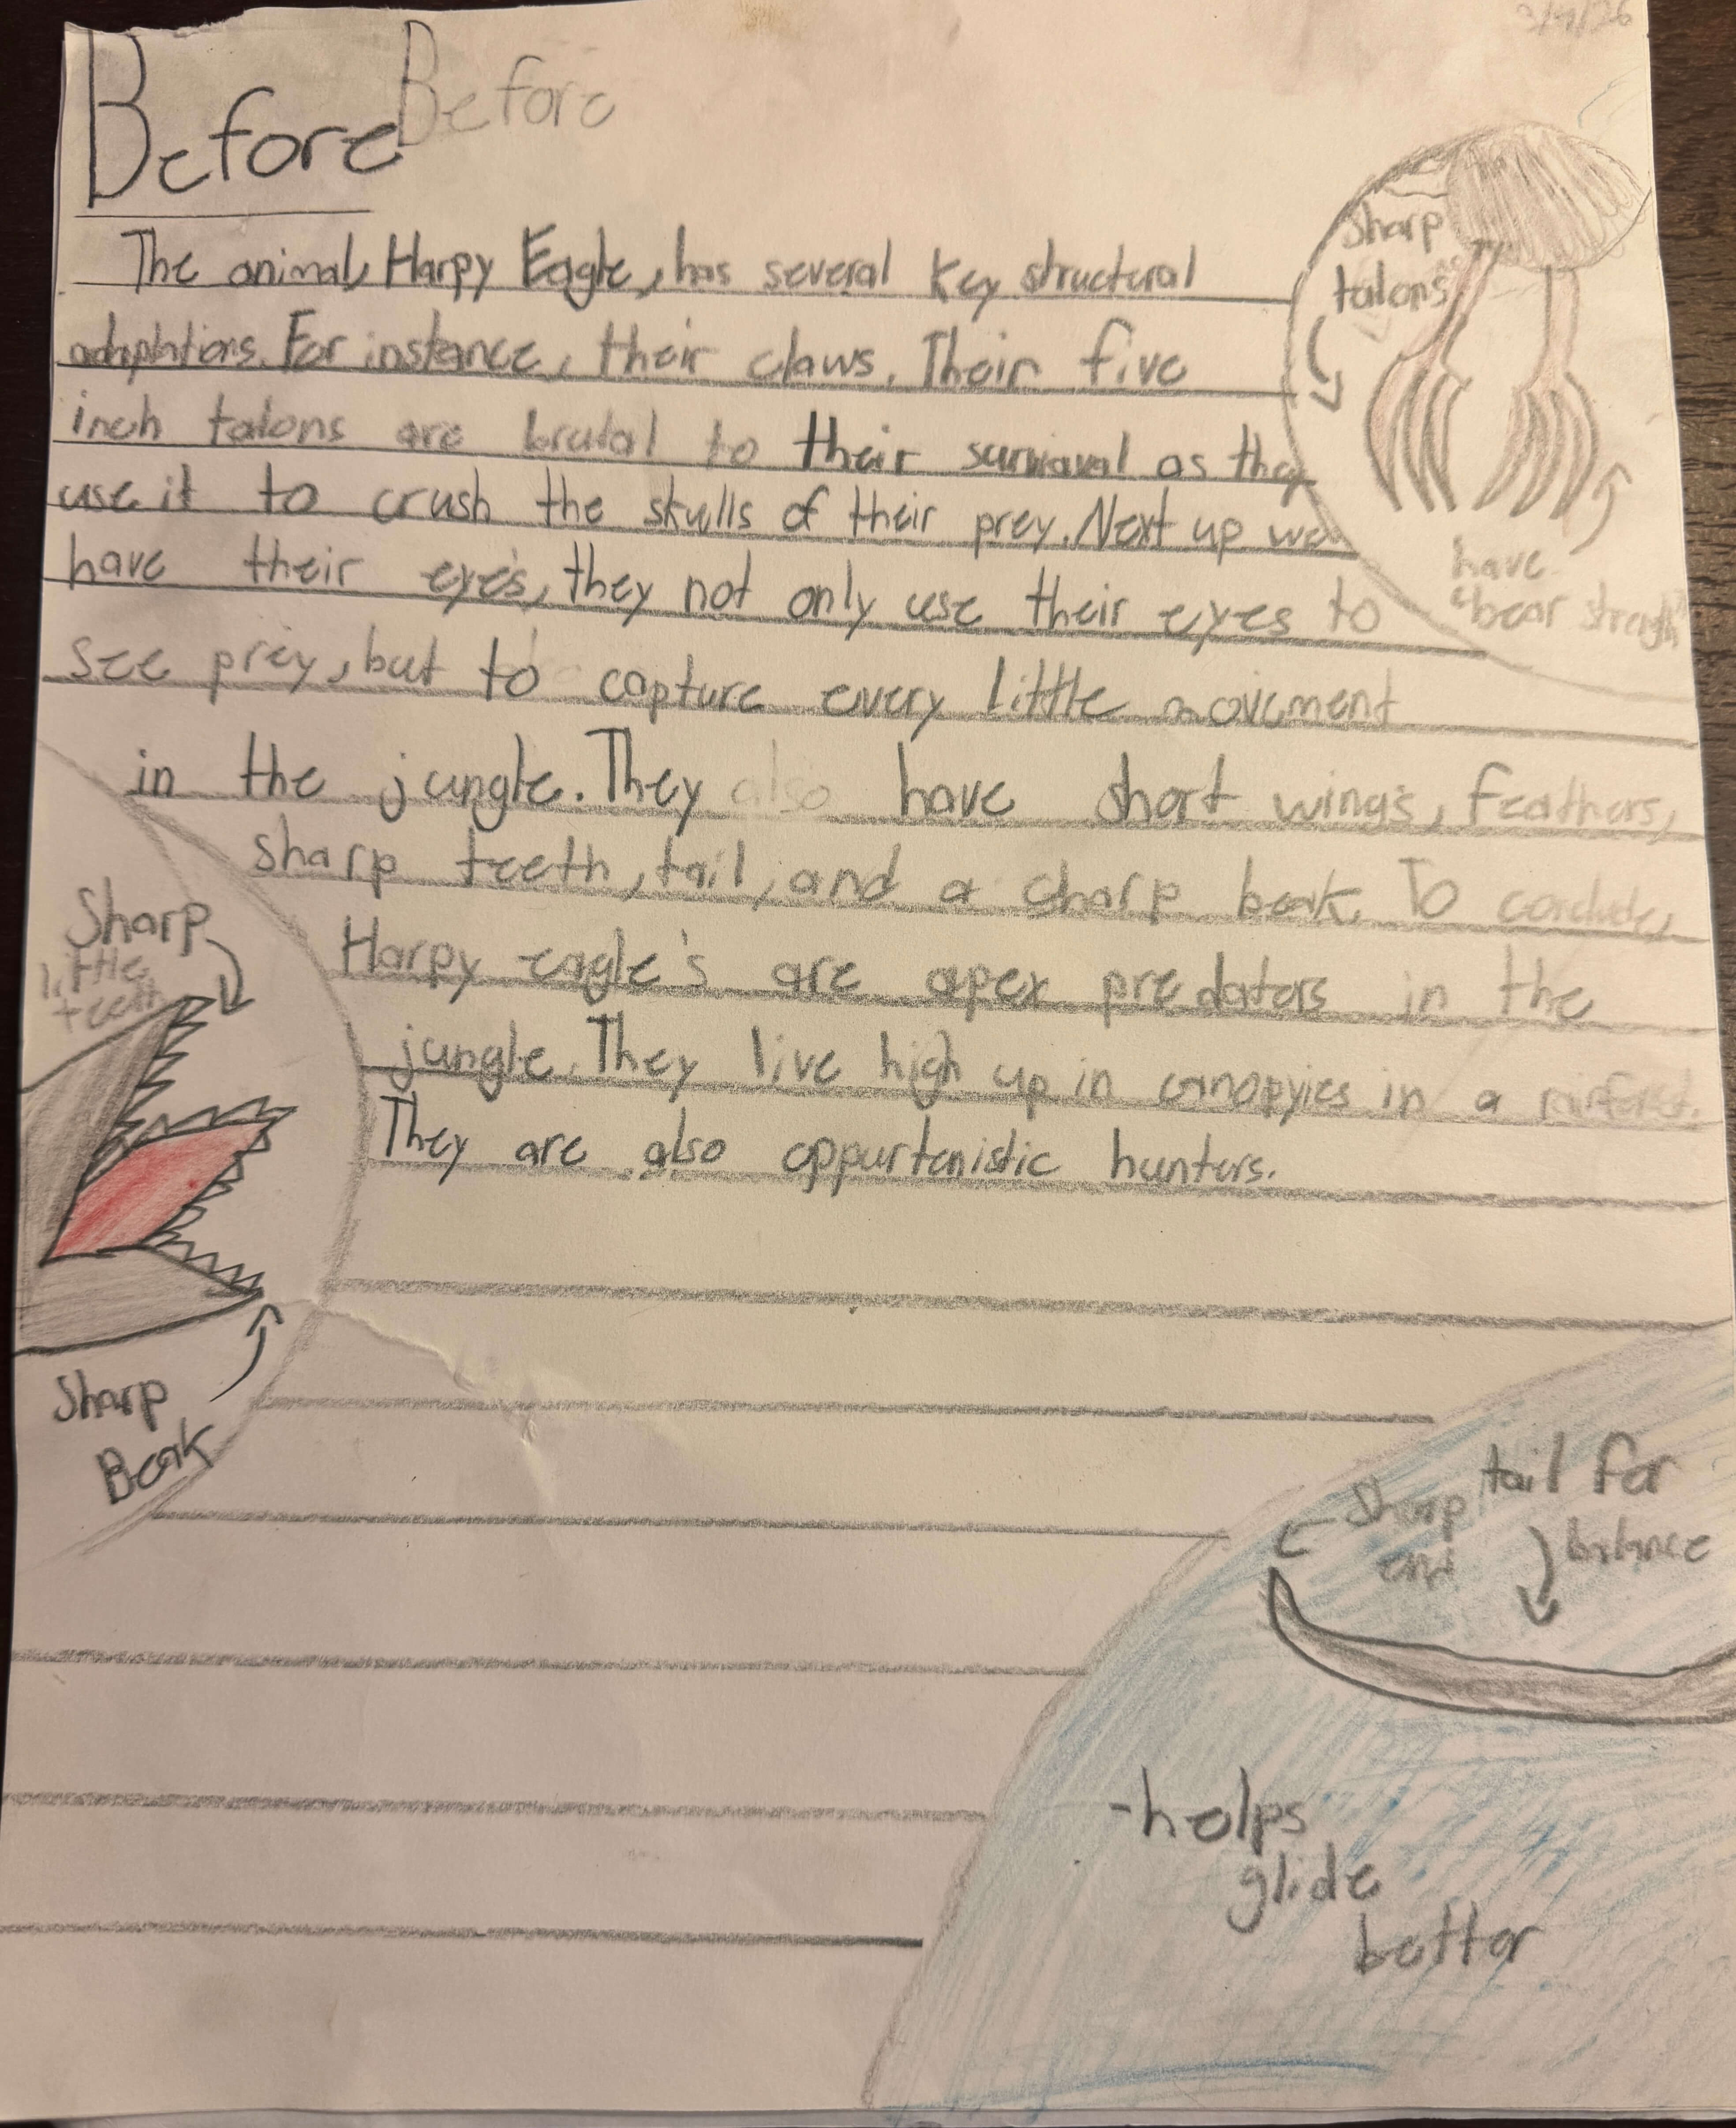 Before Before
The animal, Harpy Eagle, has several key structural
adaptations. For instance, their claws. Their five
inch talons are brutal to their survival as they
use it to crush the skulls of their prey. Next up we
have their eye's, they not only use their eyes to
see prey, but to capture every little movement
in the jungle. They also have short wing's, feathers,
sharp teeth, tail, and a sharp beak. To conclude,
Harpy eagle's are apex predators in the
jungle. They live high up in canopyies in a
They are also oppurtenistic hunters.
Sharp
talons
have
"bear strength"
Sharp
little
teeth
Sharp
Beak
Sharp
end
tail for
balance
-helps
glide
better